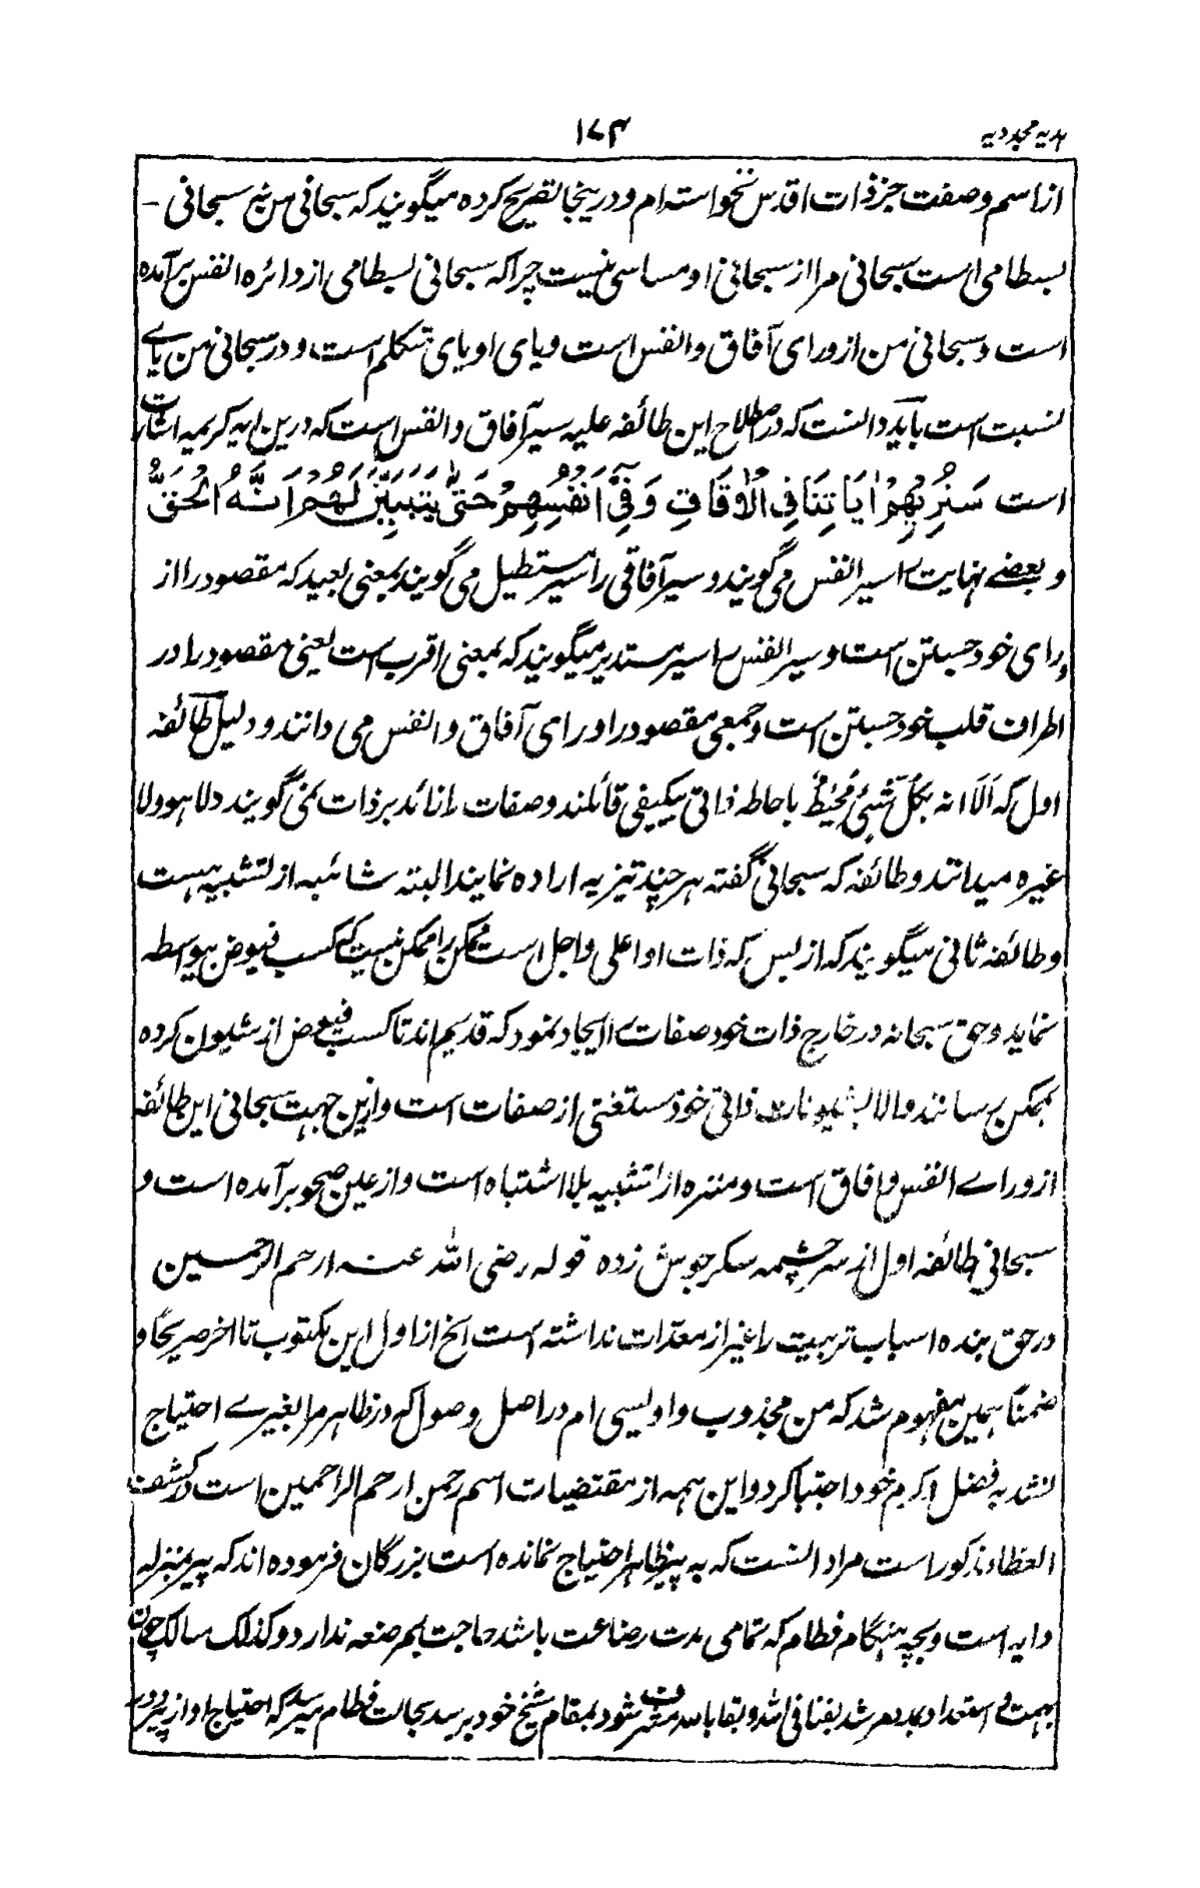 هدیه مجددیه
۱۷۴
از اسم و صفت جز ذات اقدس نخواسته ام و درینجا تصریح کرده میگویند که سبحانی من نه سبحانی -
بسطامی است سبحانی مرا از سبحانی او مساسی نیست چرا که سبحانی بسطامی از دائره انفس برآمده
است و سبحانی من از ورای آفاق و انفس است و یای او یای تکلم است و در سبحانی من یاے
نسبت است باید دانست که در اصطلاح این طائفه علیه سیر آفاق و انفس است که درین آیه کریمه اشارت
است سَنُرِیْهِمْ اٰیَاتِنَا فِی الْاٰفَاقِ وَفِیْٓ اَنْفُسِهِمْ حَتّٰی یَتَبَیَّنَ لَهُمْ اَنَّهُ الْحَقُّ
و بعضے نهایت را سیر انفس می گویند و سیر آفاقی را سیر مستطیل می گویند بمعنی بعید که مقصود را از
ورای خود جستن است و سیر انفس را سیر مستدیر میگویند که بمعنی اقرب است یعنی مقصود را در
اطراف قلب خود جستن است و جمعی مقصود را ورای آفاق و انفس می دانند و دلیل طائفه
اول که اَلَا انه بِکُلِّ شَیْءٍ مُّحِیْطٌ باحاطه ذاتی بیکیفی قائلند و صفات را زائد بر ذات نمی گویند و لا هو ولا
غیره میدانند و طائفه که سبحانی گفته هر چند تنزیه اراده نمایند البته شائبه از تشبیه هست
و طائفه ثانی میگویند که از بس که ذات او اعلی و اجل است ممکن را ممکن نیست که کسب فیوض بیواسطه
نماید و حق سبحانه در خارج ذات خود صفات را ایجاد نمود که قدیم اند تا کسب فیوض از شیون کرده
بممکن برسانند والا بشیونات ذاتی خود مستغنی از صفات است و ازین جهت سبحانی این طائفه
از وراے انفس و آفاق است و منزه از تشبیه بلا اشتباه است و از عین صحو برآمده است و
سبحانی طائفه اول از سرچشمه سکر جوش زده قوله رضی الله عنه ارحم الرحمین
در حق بنده اسباب تربیت را غیر از معدات نداشته است الخ از اول این مکتوب تا آخر صریحاً و
ضمناً همین مفهوم شد که من مجذوب و اویسی ام در اصل وصول که در ظاهر مرا بغیرے احتیاج
نشد به فضل کرم خود اجتبا کرد و این همه از مقتضیات اسم رحمن ارحم الراحمین است در کشف
الغطاء مذکور است مراد آنست که به پیر ظاهر احتیاج نمانده است بزرگان فرموده اند که پیر بمنزله
دایه است و بچه بهنگام فطام که تمامی مدت رضاعت باشد حاجت بمرضعه ندارد و کذلک سالک چون
شود بمقام شیخ خود برسد بحالت فطام میرسد که احتیاج او از پیر